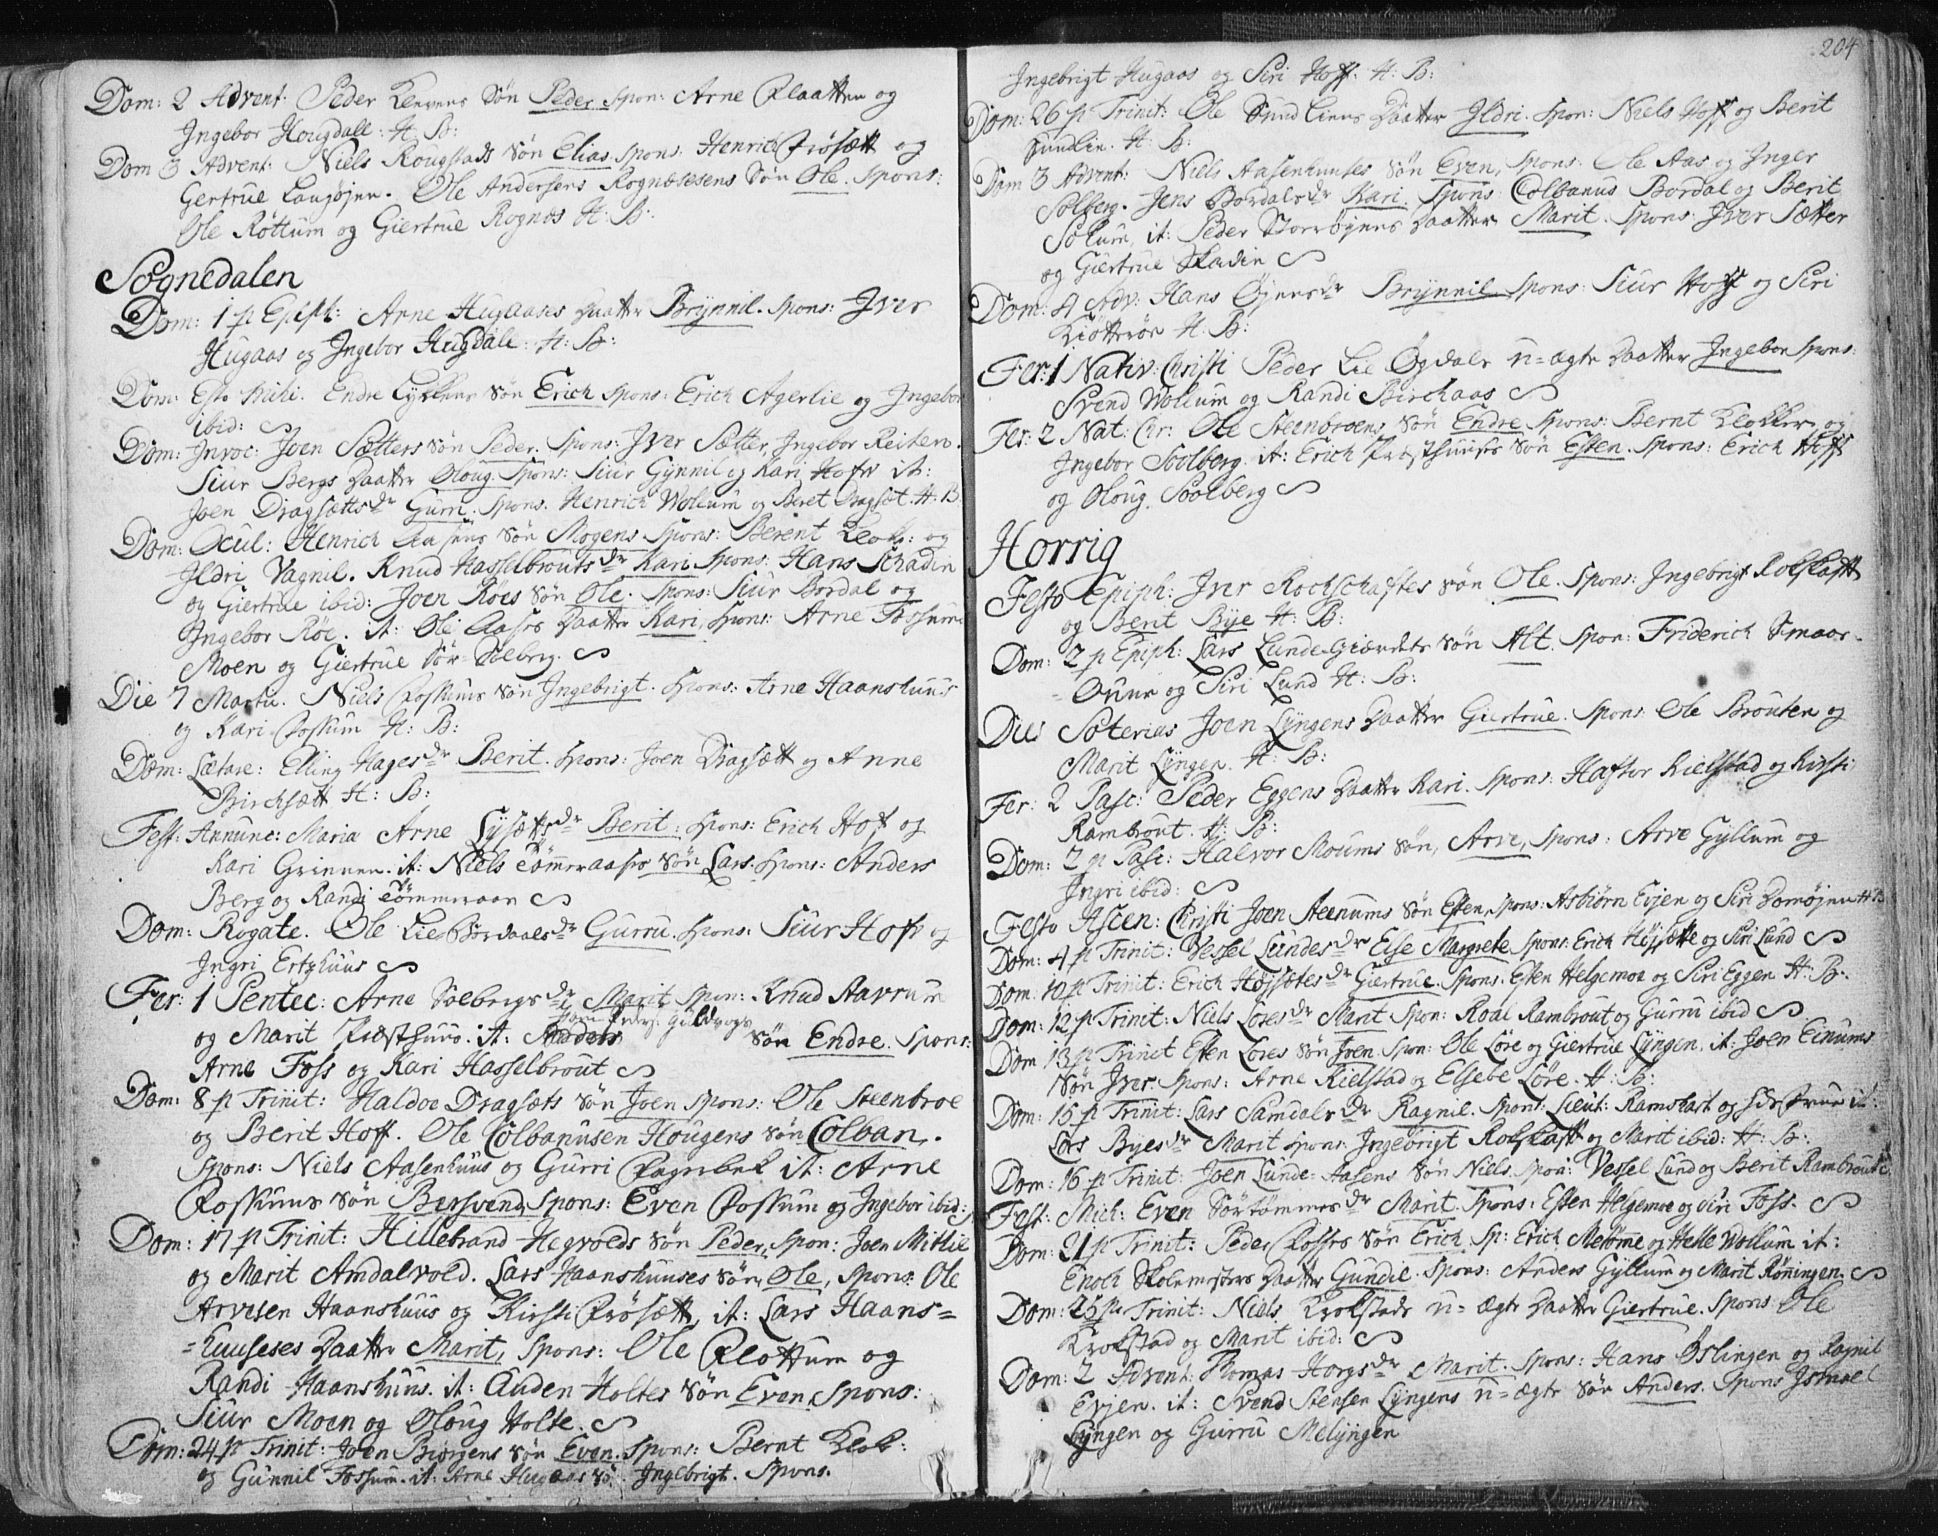 Dom: 2 Advent: Peder Kleevens Søn Peder Spon: Arne Klaatten og
Ingebor Hougdall: H: B:
Dom 3 Advent: Niels Rougstads Søn Elias. Spons: Henrich Frøsætt og
Gertrue Langøjen. Ole Andersens Rognæsesens Søn Ole. Spons:
Ole Røttum og Giertrue Rognæs H: B:
Sognedalen
Dom: 1 p Epiph: Arne Hugaases Daatter Brynnil. Spons: Jver
Hugaas og Ingebor Hugdale. H: B:
Dom: Esto Mihi. Endre Lykkens Søn Erich Spons: Erich Agerlie og Ingebor
ibid:
Dom: Jnvoc: Joen Sætters Søn Peder. Spons: Jver Sætter, Ingebor Reiten.
Siur Bergs Daatter Oloug. Spons: Siur Gynnil og Kari Hofe it:
Joen Dragsætts Dr Gurri. Spons. Henrich Wollum og Beret Dragsæt. H: B
Dom: Ocul: Henrich Aasens Søn Mogens. Spons: Berent Klok: og
Jldri Vagnil. Knud Hasselbrouts Dr Kari Spons: Hans Skadin
og Giertrue ibid: Joen Røes Søn Ole. Spons: Siur Bordal og
Ingebor Røe. it: Ole Aases Daatter Kari, Spons: Arne Fossum
Moen og Giertrue Sør-Solberg.
Die 7 Martii. Niels Possums Søn Ingebrigt. Spons: Arne Haanshuus
og Kari Possum H: B:
Dom: Lætare: Elling Hages Dr Berit. Spons: Joen Dragsætt og Anne
Birchsætt H: B:
Fest: Annunc: Maria Arne Lysætts Dr Berit: Spons: Erich Hof og
Kari Grinnen. it: Niels Tømmeraases Søn Lars. Spons: Anders
Berg og Randi Tømmeraas
Dom: Rogate. Ole Lie Bordaals Dr Gurru. Spons: Siur Hofe og
Ingri Ertzhuus
Fer: 1 Pentec: Arne Solbergs Dr Marit Spon: Knud Aavrum
og Marit Præsthuus. it: Søn Endre. Spons:
Arne Foss og Kari Hasselbrout
Dom: 8 p Trinit: Haldoe Dragsæts Søn Joen Spons: Ole Steenbroe
og Berit Hoff. Ole Colbanusen Hougens Søn Colban.
Spons: Niels Aasenhuus og Gurri it: Arne
Possums Søn Bersvend Spons: Even Possum og Ingebor ibid:
Dom: 17 p Trinit: Hillebrand Hegvolds Søn Peder, Spon: Joen Mittlie
og Marit Amdalvold. Lars Haanshuuses Søn, Ole, Spons: Ole
Arvesen Haanshuus og Kirsti Frøsætt, it: Lars Haans=
=huuses Daatter Marit, Spons: Ole Klottum og
Randi Haanshuus. it: Auden Holtes Søn Even Spons:
Siur Moen og Oloug Holte.
Dom: 24 p Trinit: Joen Biørgens Søn Even. Spons: Bernt Klok:
og Gunnil Fossum. it: Arne Hugaas Sø. Ingebrigt. Spons.
204
Ingebrigt Hugaas og Siri Hoff. H: B:
Dom: 26 p Trinit: Ole Sundliens Daatter Jldri. Spon: Niels Hoff og Berit
Sundlin. H: B:
Dom 3 Advent: Niels Aasenhuuses Søn Even, Spons: Ole Aas og Inger
Solberg. Jens Bordals Dr Kari. Spons: Colbanus Bordal og Berit
Solum, it: Peder Storrøjens Daatter Marit. Spons: Jver Sætter
og Giertrue Skadin
Dom: 4 Adv: Hans Øjens Dr Brynnil Spons: Siur Hoff og Siri
Kiøttrøe H: B:
Fer: 1 Nativ: Christi Peder Lie Øgdals u=ægte Daatter Ingebor Spons:
Svend Wollum og Randi Birchaas
Fer: 2 Nat: Chr: Ole Steenbroens Søn Endre Spons: Bernt Klokker og
Ingebor Soolberg. it: Erich Præsthuuses Søn Esten. Spons: Erich Hoff
og Oloug Soolberg
Horrig
Festo Epiph: Jver Rochschaftes Søn Ole. Spons: Ingebrigt Rolfskaft
og Berit Bye H: B:
Dom: 2 p Epiph: Lars Lunde-Giærdets Søn Alt. Spon: Friderich Smaae-
-Ounn og Siri Lund H: B:
Dies Soterias Joen Lyngens Daatter Giertrue. Spons: Ole Brouten og
Marit Lyngen. H: B:
Fer: 2 Pasc: Peder Eggens Daatter Kari. Spons: Haftor Kielstad og Kirsti
Rambrout. H: B:
Dom: 2 p Pasc: Halvor Moums Søn, Arve, Spons: Arve Gyllum og
Ingri ibid:
Festo Ascen: Christi Joen Steenums Søn Esten, Spons: Asbiørn Evjen og Siri Domøjen H: B
Dom: 4 p Trinit: Vessel Lundes Dr Else Margrete Spons: Erich Høysætte og Siri Lund
Dom: 10 p Trinit: Erich Højsætes Dr Giertrue. Spons: Esten Helgemoe og Siri Eggen H: B:
Dom: 12 p Trinit: Niels Lores Dr Marit Spon: Roal Rambrout og Gurru ibid
Dom 13 p Trinit Esten Lores Søn Joen. Spon: Ole Løre og Giertrue Lyngen. it: Joen Einums
Søn Jver. Spons: Arne Kielstad og Elsebe Løre. H: B:
Dom: 15 p Trinit: Lars Samdals Dr Ragnil. Spons: Lieut: Ramskart og it:
Lars Byes Dr Marit Spons: Ingebrigt Rolfskaft og Marit ibid: H: B:
Dom: 16 p Trinit: Joen Lunde-Aasens Søn Niels. Spon: Vessel Lund og Berit Rambrout
Fest: Mich: Even Sørtømmes Dr Marit. Spons: Esten Helgemoe og Siri Foss.
Dom: 21 p Trinit: Peder Fosses Søn Erich Sp: Erich Meløme og Helle Wollum it:
Enoch Skolemesters Daatter Gundie. Spons: Anders Gyllum og Marit Røningen.
Dom: 25 p Trinit: Niels Krokstads u=ægte Daatter Giertrue. Spons Ole
Krokstad og Marit ibid:
Dom: 2 Advent. Thomas Horgs Dr Marit. Spons: Hans Øslingen og Ragnil
Evjen. it: Svend Stensen Lyngens u=ægte Søn Anders. Spons Ismael
Lyngen og Gurru Melyngen